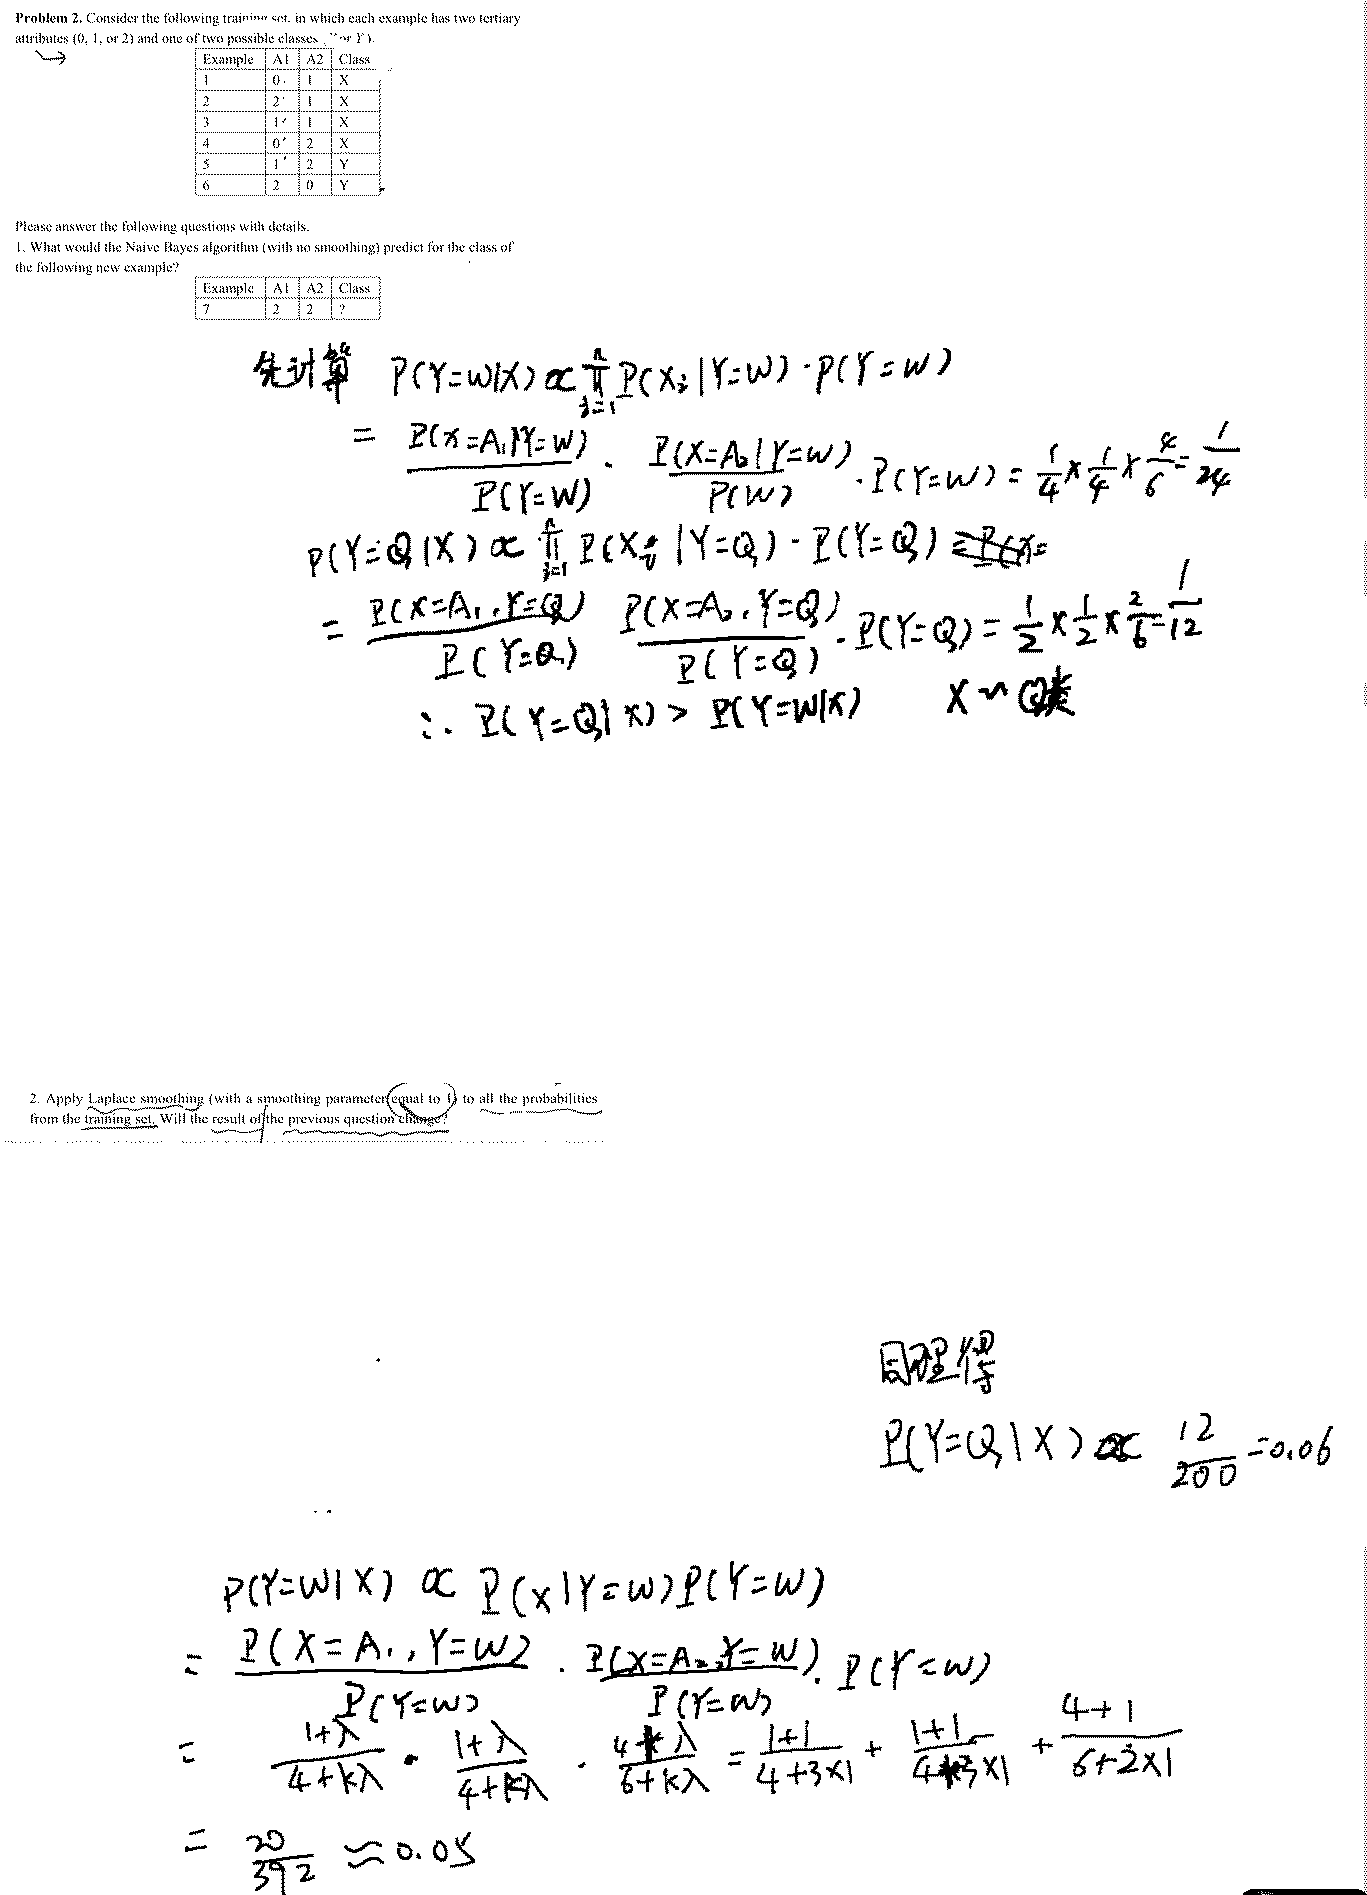 Problem 2. Consider the following training set, in which each example has two tertiary
attributes (0, 1, or 2) and one of two possible classes or Y).
Example A1 A2 Class
1 0 1 X
2 2 1 X
3 1 1 X
4 0 2 X
5 1 2 Y
6 2 0 Y
Please answer the following questions with details.
1. What would the Naive Bayes algorithm (with no smoothing) predict for the class of
the following new example?
Example A1 A2 Class
7 2 2 ?
先计算 P(Y=W|X) ∝ ∏_{j=1}^{n} P(Xj|Y=W)·P(Y=W)
= P(X=A₁|Y=W)/P(Y=W) · P(X=A₂|Y=W)/P(W) · P(Y=W) = 1/4 × 1/4 × 4/6 = 1/24
P(Y=Q|X) ∝ ∏_{j=1}^{n} P(Xj|Y=Q)·P(Y=Q)
= P(X=A₁,Y=Q)/P(Y=Q) P(X=A₂,Y=Q)/P(Y=Q) · P(Y=Q) = 1/2 × 1/2 × 2/6 = 1/12
∴ P(Y=Q|X) > P(Y=W|X) X ~ Q类
2. Apply Laplace smoothing (with a smoothing parameter equal to 1) to all the probabilities
from the training set. Will the result of the previous question change?
同理得
P(Y=Q|X) ∝ 12/200 = 0.06
P(Y=W|X) ∝ P(X|Y=W)P(Y=W)
= P(X=A₁,Y=W)/P(Y=W) · P(X=A₂,Y=W)/P(Y=W) · P(Y=W)
= (1+λ)/(4+kλ) · (1+λ)/(4+kλ) · (4+λ)/(6+kλ) = (1+1)/(4+3×1) + (1+1)/(4+3×1) + (4+1)/(6+2×1)
= 20/392 ≈ 0.05